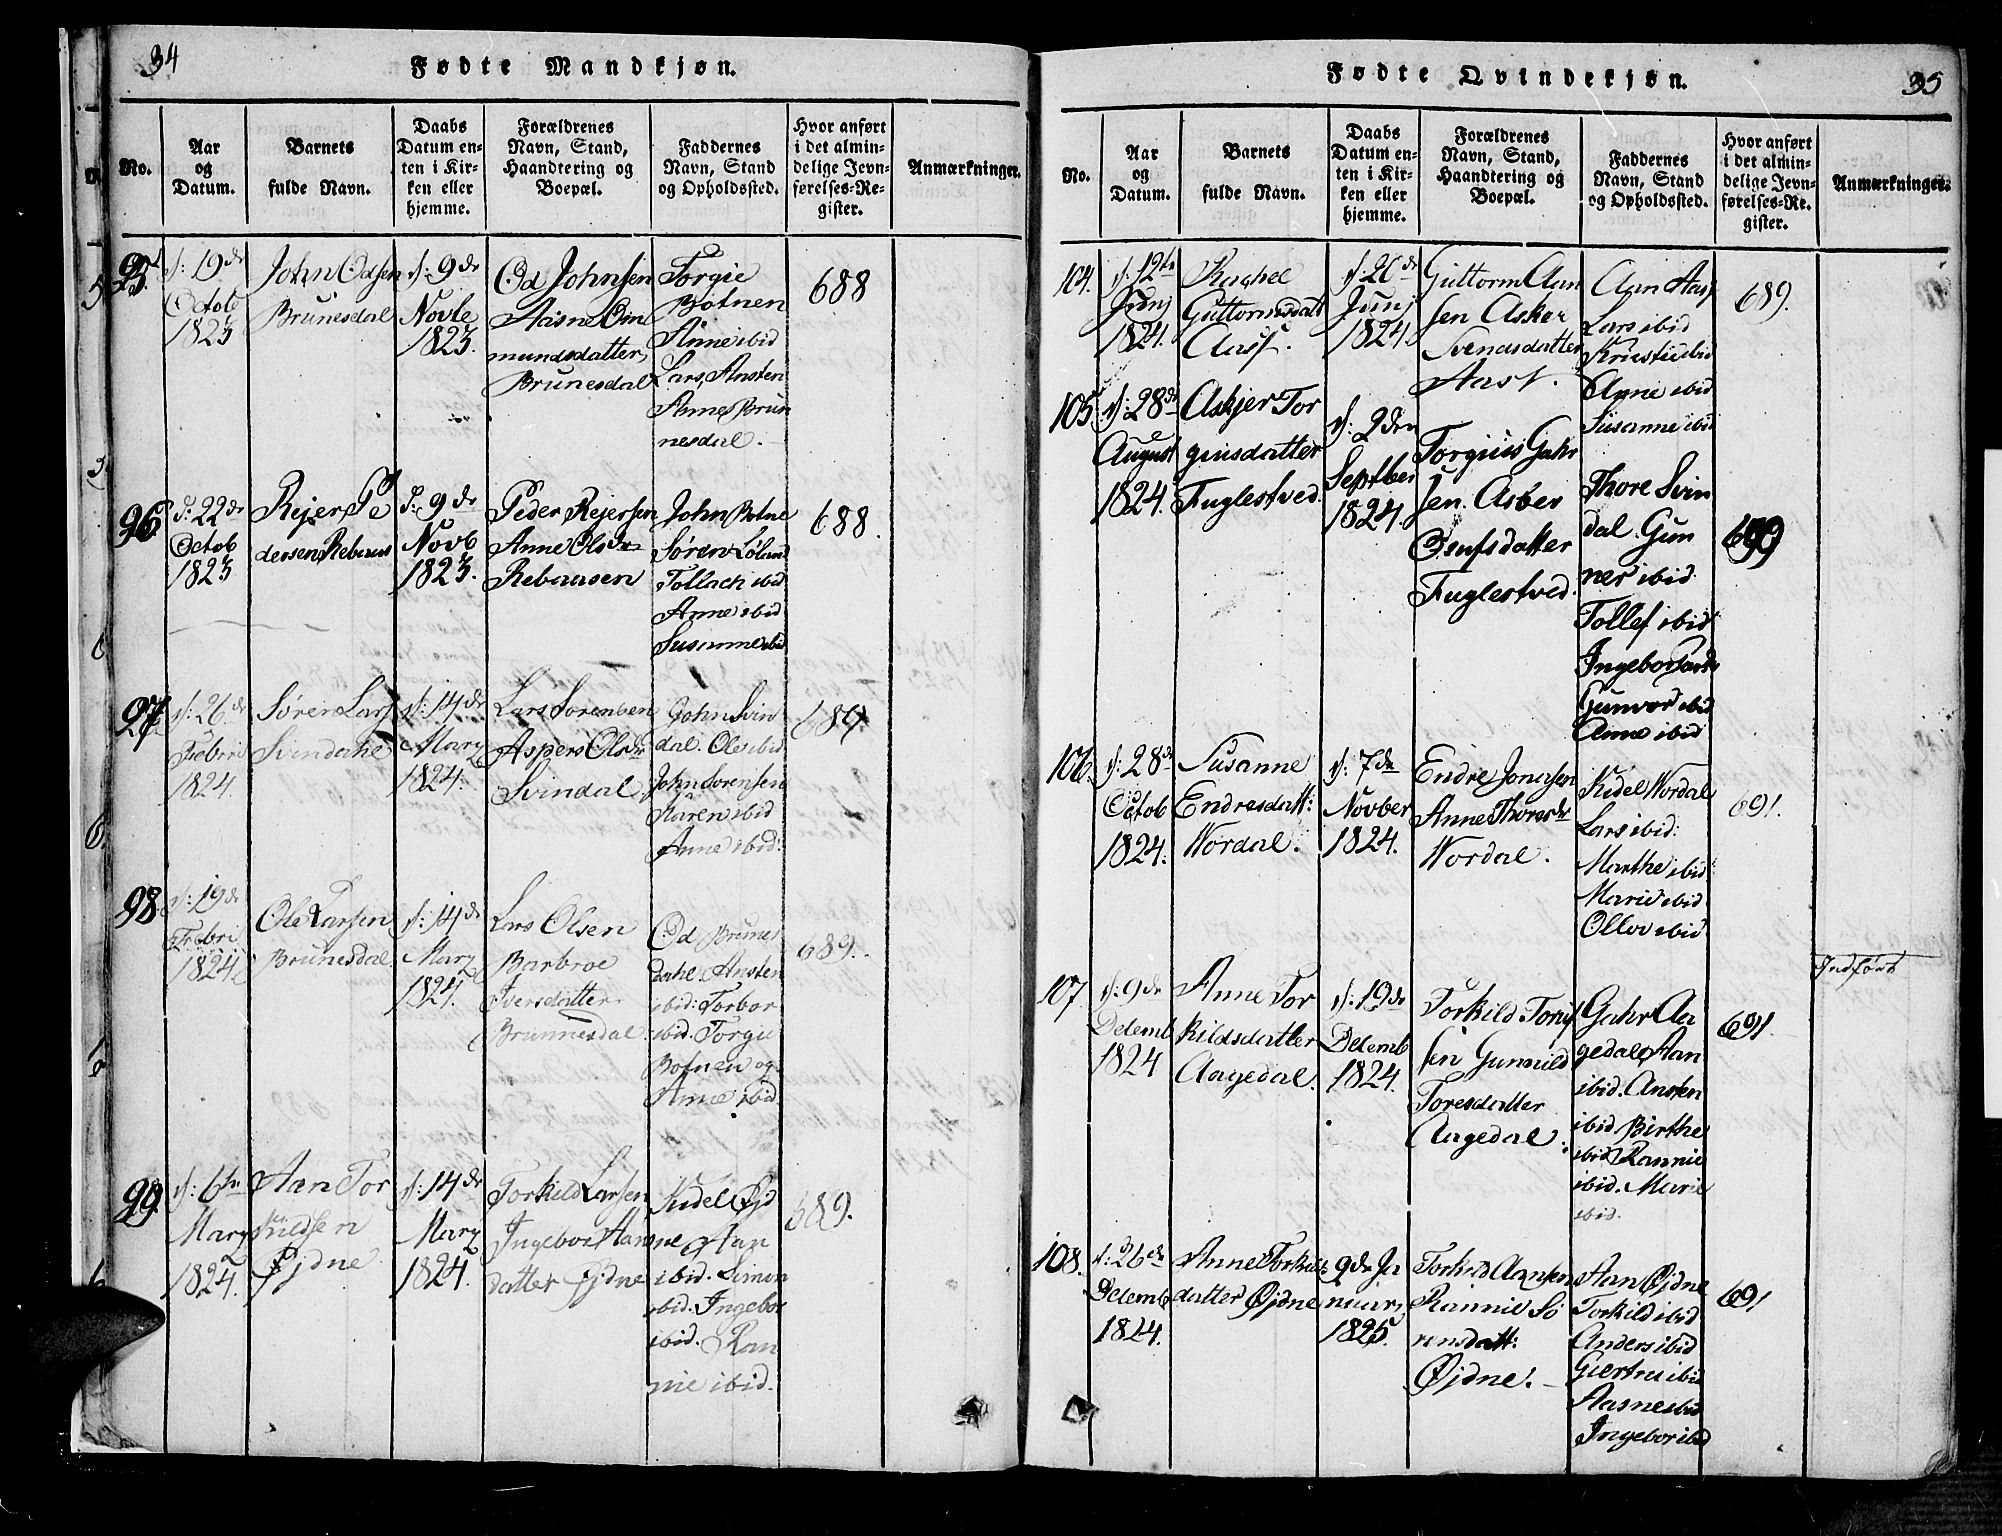 34
Fødte Mandkjøn.
No.
Aar
og
Datum.
Barnets
fulde Navn.
Daabs
Datum en-
ten i Kir-
ken eller
hjemme.
Forældrenes
Navn, Stand,
Haandtering og
Boepæl.
Faddernes
Navn, Stand
og Opholdssted.
Hvor anført
i det almin-
delige Jevn-
førelses-Re-
gister.
Anmærkninger.
95.
d: 19de
Octob
1823
John Odsen
Brunesdal
d: 9de
Novbe
1823.
Od Johnsen
Aasne Om
mundsdatter
Brunesdal
Torgie
Botnen
Anne ibid
Lars, Ansten
Anne Brun
nesdal.
688
96
d: 22de
Octob
1823
Rejer Pe
dersen
d: 9de
Novb
1823.
Peder Rejersen
Anne Olsdr
Rebaasen
John Botne
Søren Lølund
Tollach ibid
Anne ibid
Susanne ibid
688.
97
d: 26de
Febri
1824.
Søren Lars
Svindahl
d: 14de
Marz
1824.
Lars Sørensen
Aspers Olsdr
Svindal
John Svin
dal. Ole ibid
John Sørensen
Karen ibid
Anne ibid.
689
98.
d: 19de
Febri
1824
Ole Larsen
Brunesdal
d: 14de
Marz
1824.
Lars Olsen
Barbroe
Iversdatter
Brunnesdal
Od Brunes
dahl Ansten
ibid: Torbor
ibid. Torgu
Botnen og
Anne ibid.
689.
99.
d: 6te
Marz
1824.
Aan Tor
kildsen
Øjdne
d: 14de
Marz
1824.
Torkild Larsen
Ingebor Aans
datter Øjdne
Kidel Øjd
ne Aan
ibid. Simon
ibid. Ingebor
ibid. Ran
nie ibid.
689.
35
Fødte Qvindekjøn.
No.
Aar
og
Datum.
Barnets
fulde Navn.
Daabs
Datum en-
ten i Kir-
ken eller
hjemme.
Forældrenes
Navn, Stand,
Haandtering og
Boepæl.
Faddernes
Navn, Stand
og Opholdssted.
Hvor anført
i det almin-
delige Jevn-
førelses-Re-
gister.
Anmærkninger.
104.
d: 12te
Junj
1824.
Rachel
Guttormsdatt
Aast.
d: 20de
Junj
1824.
Guttorm Aan
sen Asker
Svendsdatter
Aast.
Aan Aast
Lars ibid
Kristie ibid
Anne ibid
Susanne ibid
689.
105.
d: 28de
August
1824.
Askjer Tor
giusdatter
Fuglestved.
d: 2den
Septber
1824.
Torgius Gahr
sen. Asber
Osufsdatter
Fuglestved.
Thore Svin
dal. Gun
ner ibid
Tollef ibid
Ingebor
Gunvor ibid
Anne ibid
106.
d: 28de
Octob
1824.
Susanne
Endresdatt:
Nordal.
d: 7de
Novber
1824.
Endre Jonasen
Anne Thoresdr
Nordal.
Kidel Nordal
Lars ibid:
Marthe ibid
Marie ibid
Ollov ibid
691.
107
d: 9de
Decemb
1824
Anne Tor
kildsdatter
Aagedal.
d: 19de
Decemb
1824.
Torkild Torjs
sen Gunnild
Toresdatter
Aagedal.
Gahr Aa
gedal Aan
ibid. Ansten
ibid. Birthe
ibid Rannie
ibid. Marie
ibid.
691.
Indført
108.
d: 26de
Decemb
1824.
Anne Torkilds
datter Øjdne
9de Ja
nuari
1825.
Torkild Aansen
Rannie Sø
rensdatt:
Øjdne.
Aan Øjdne
Torkild ibid
Anders ibid
Giertru ibid
Aasne ibid
Ingebor ibid
691